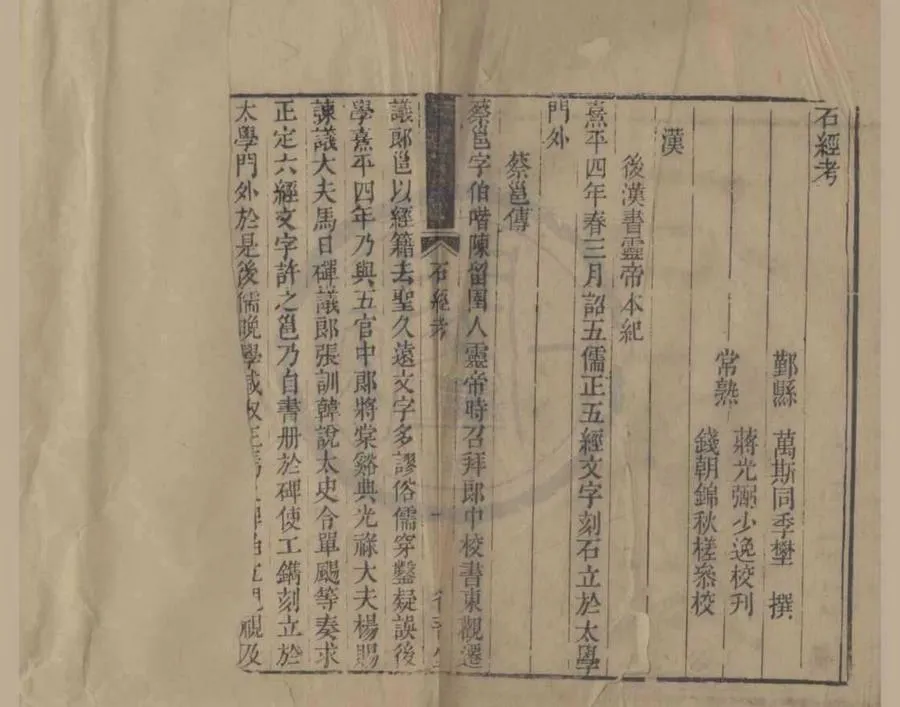 石經考
鄞縣 萬斯同季壄 撰
常熟
蔣光弼少逸校刋
錢朝錦秋槎叅校
漢
後漢書靈帝本紀
熹平四年春三月詔五儒正五經文字刻石立於太學
門外
蔡邕傳
蔡邕字伯喈陳留圉人靈帝時召拜郎中校書東觀遷
石經考 一
議郎邕以經籍去聖久遠文字多謬俗儒穿鑿疑誤後
學熹平四年乃與五官中郎將棠谿典光祿大夫楊賜
諫議大夫馬日磾議郎張訓韓說太史令單颺等奏求
正定六經文字許之邕乃自書册於碑使工鐫刻立於
太學門外於是後儒晚學咸取正焉 立 視及